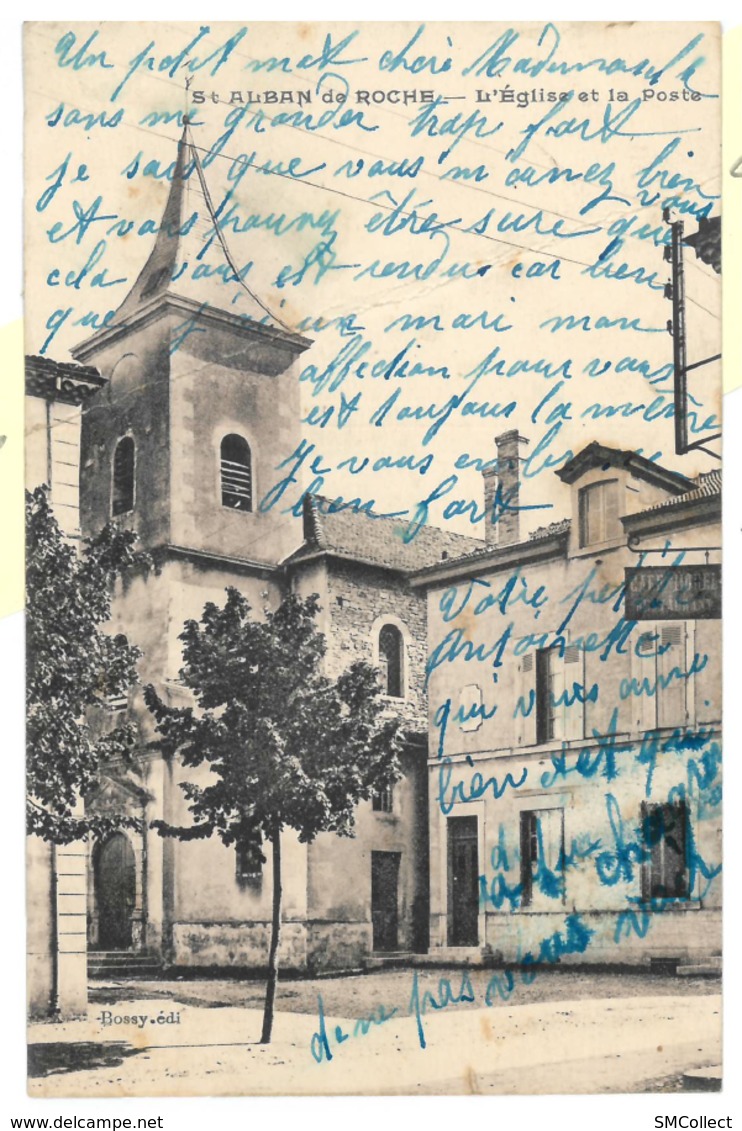 Un petit mot chère Mademoiselle
St ALBAN de ROCHE — L'Église et la Poste
sans me grander trop fort
je sais que vous m'aimez bien
et vous pouvez être sure que vous
cela vous est rendu car bien
que j'ai un mari mon
affection pour vous
est toujours la même
Je vous embrasse
bien fort
Votre petite
Antoinette
qui vous aime
bien et qui
a du chagrin
de ne pas vous voir
Bossy.édi
SMCollect